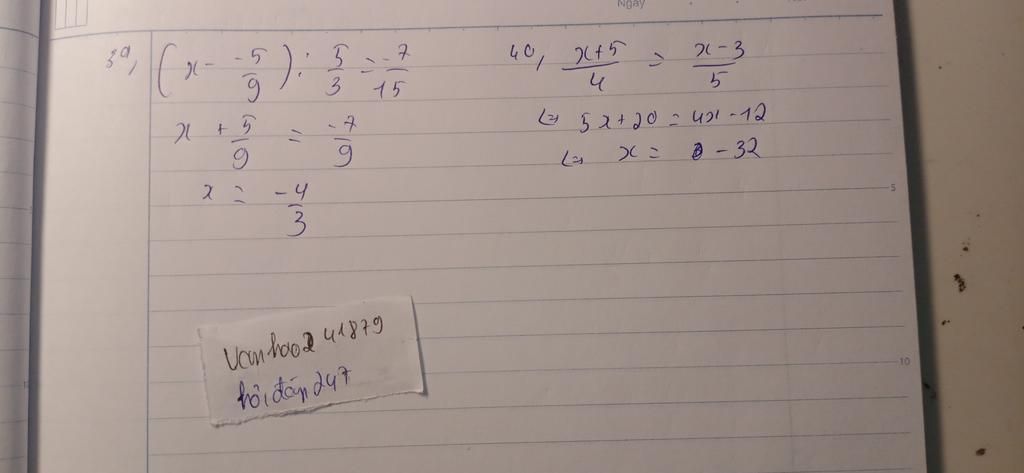 Ngày
39, (x - -5/9) : 5/3 = -7/15
x + 5/9 = -7/9
x = -4/3
40, x+5/4 = x-3/5
<=> 5x+20 = 4x-12
<=> x = -32
5
Vanhao241879
hỏi đáp 247
10